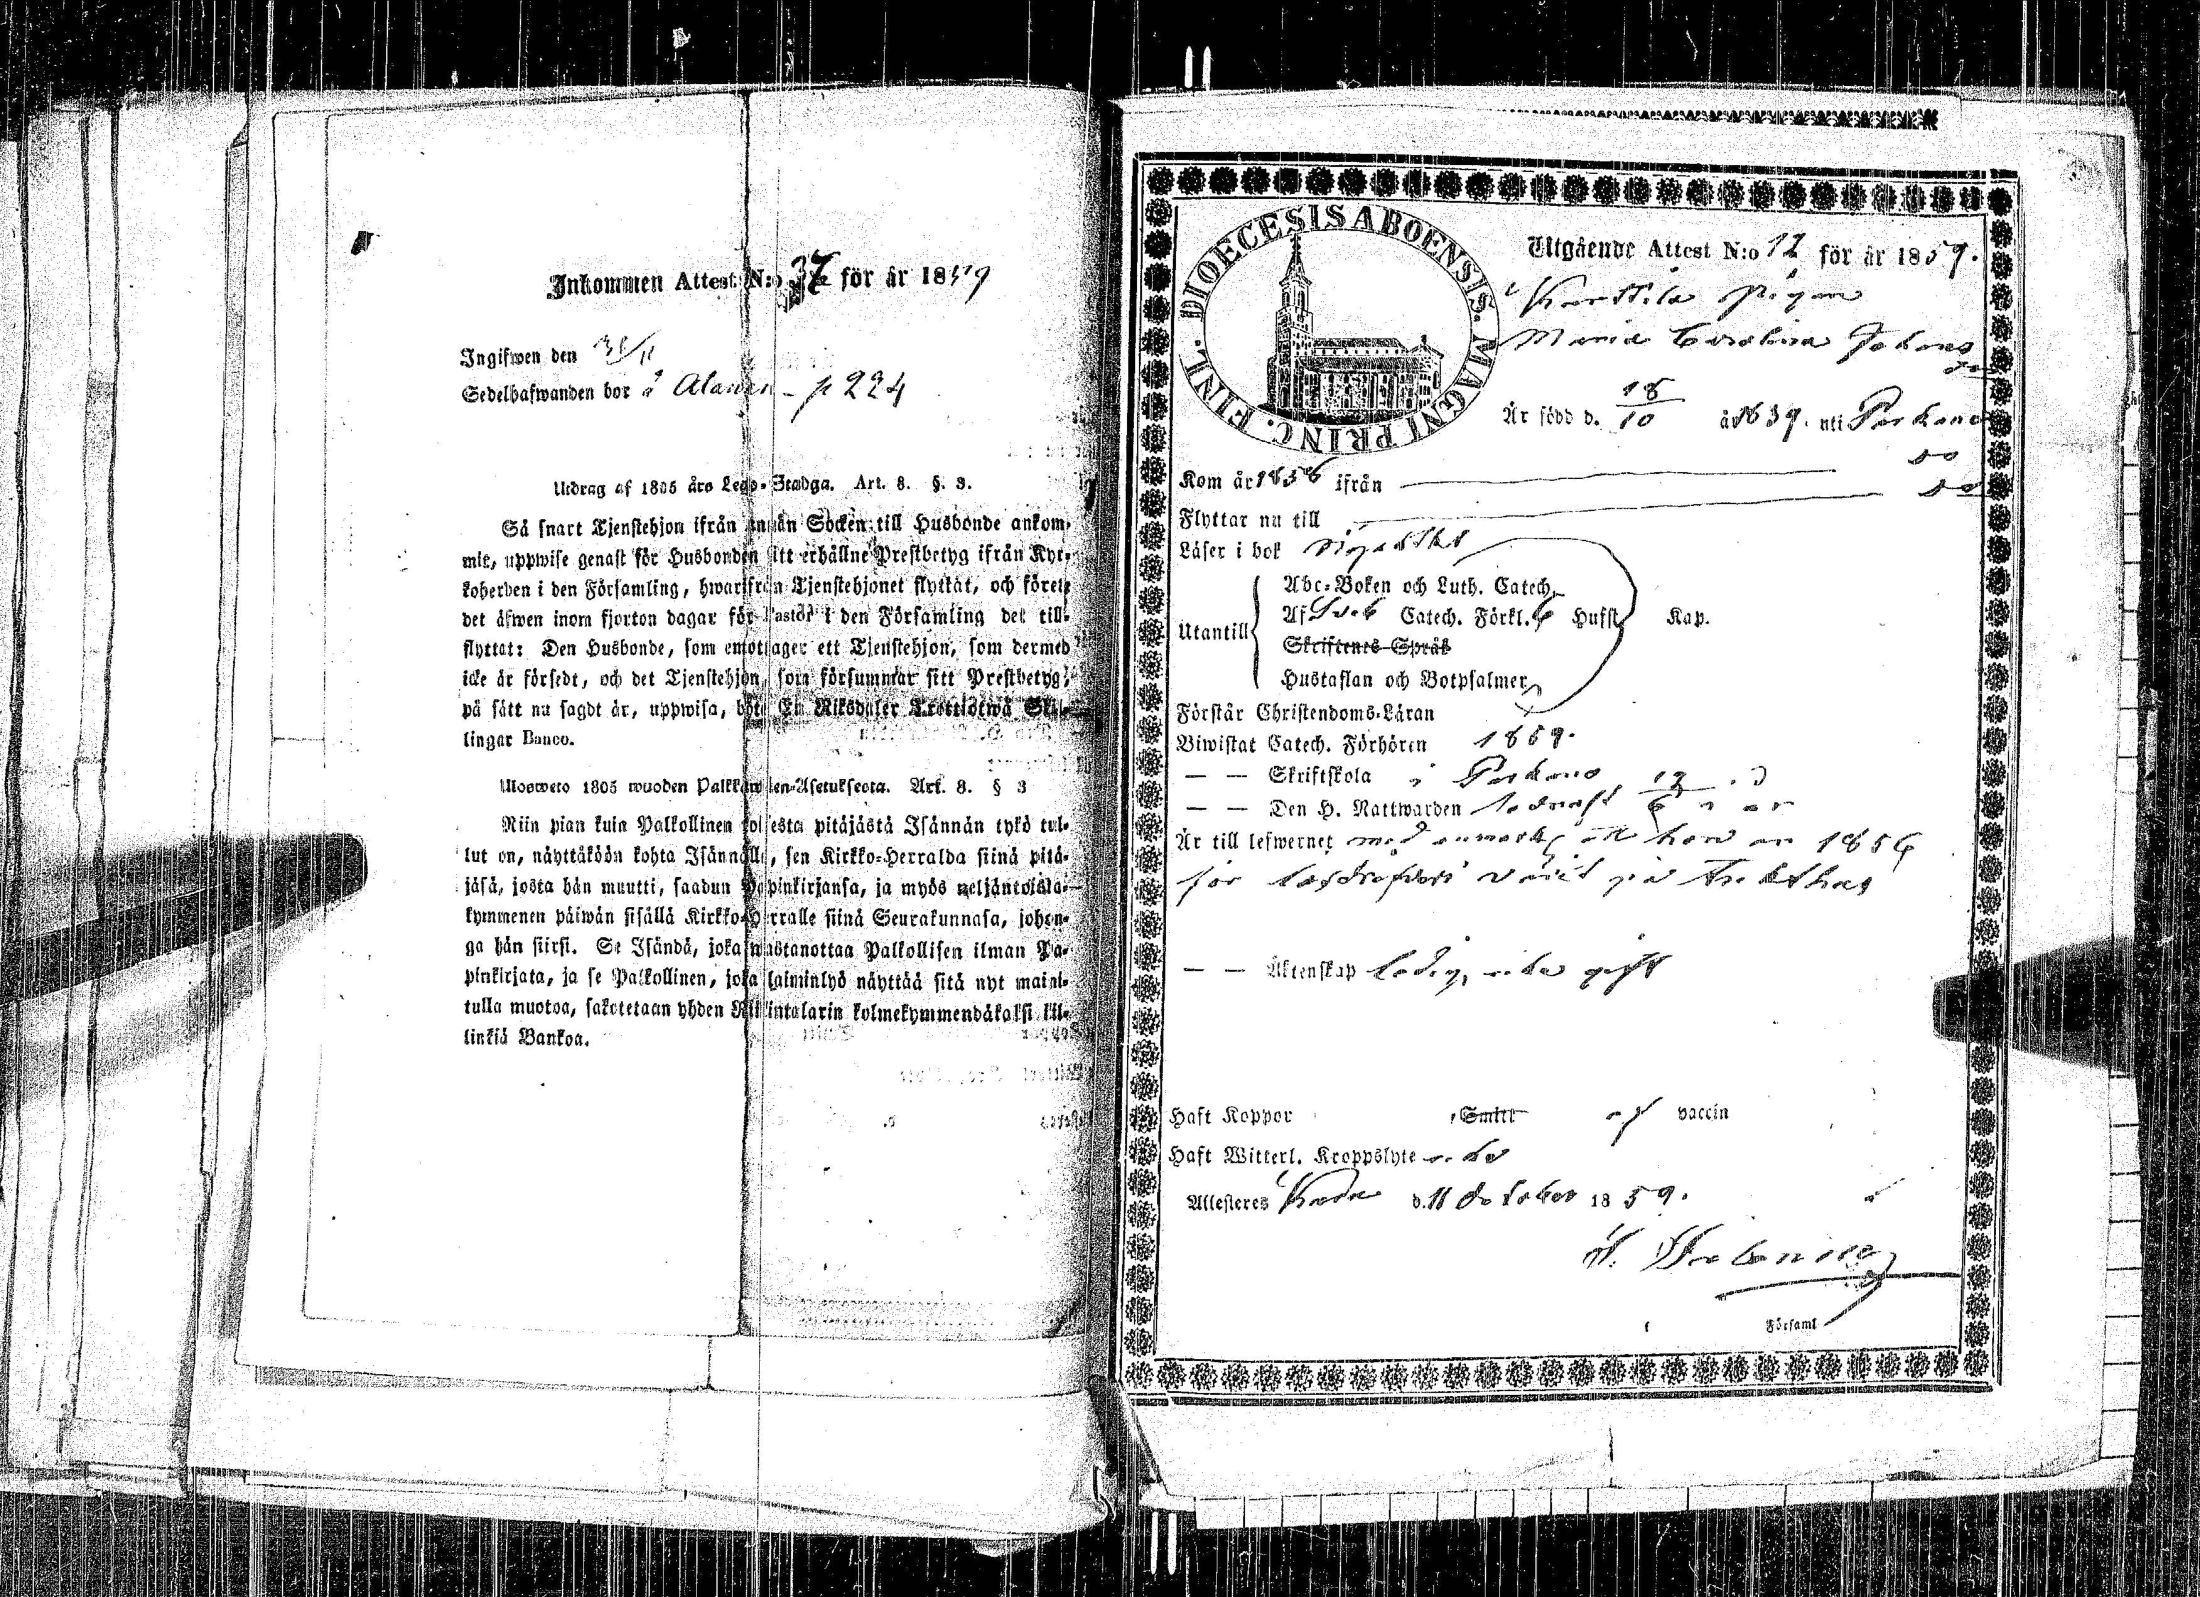 Inkommen Attest N:o 37 för år 1859
Ingifwen den
Sedelhafwanden bor å Alanen - p 224
Utdrag af 1805 års Lego-Stadga. Art. 8. §. 3.
Så snart Tjenstehjon ifrån annan Socken till Husbonde ankom-
mit, uppwise genast för Husbonden sitt erhållne Prestbetyg ifrån Kyr-
koherden i den Församling, hwarifrån Tjenstehjonet flyttat, och förete
det äfwen inom fjorton dagar för Pastor i den Församling det till-
flyttat: Den Husbonde, som emottager ett Tjenstehjon, som dermed
icke är försedt, och det Tjenstehjon, som försummar sitt Prestbetyg,
på sätt nu sagdt är, uppwisa, böte En Riksdaler Trettiotwå Skil-
lingar Banco.
Ulosweto 1805 wuoden Palkkawäen-Asetuksesta. Art. 8. § 3
Niin pian kuin Palkollinen toisesta pitäjästä Isännän tykö tul-
lut on, näyttäköön kohta Isännälle, sen Kirkko-Herralda siinä pitä-
jäsä, josta hän muutti, saadun Papinkirjansa, ja myös neljäntoista-
kymmenen päiwän sisällä Kirkko-Herralle siinä Seurakunnasa, johon-
ga hän siirsi. Se Isändä, joka wastanottaa Palkollisen ilman Pa-
pinkirjata, ja se Palkollinen, joka laiminlyö näyttää sitä nyt maini-
tulla muotoa, sakotetaan yhden Riksintalarin kolmekymmendäkaksi kil-
linkiä Bankoa.
DIOECESIS ABOENSIS. MAGNI PRINC. FINL.
Utgående Attest N:o 12 för år 1859.
Pigan
Maria Carolina Johans
Är född d. 18/10 år 1839. uti Parkano
Kom år 1856 ifrån do
Flyttar nu till do
Läser i bok
Utantill
Abc-Boken och Luth. Catech.
Af Sveb Catech. Förkl. 6 Hufst. Kap.
Skriftenes Språk
Hustaflan och Botpsalmer
Förstår Christendoms-Läran
Biwistat Catech. Förhören 1859.
— — Skriftskola i Parkano
— — Den H. Nattwarden sednast
Är till lefwernet med anmärkn att hon år 1856
för varit på
— — Äktenskap ledig, icke gift
Haft Koppor Smitt af vaccin
Haft Witterl. Kroppslyte icke
Attesteras d. 11 October 1859.
Församl